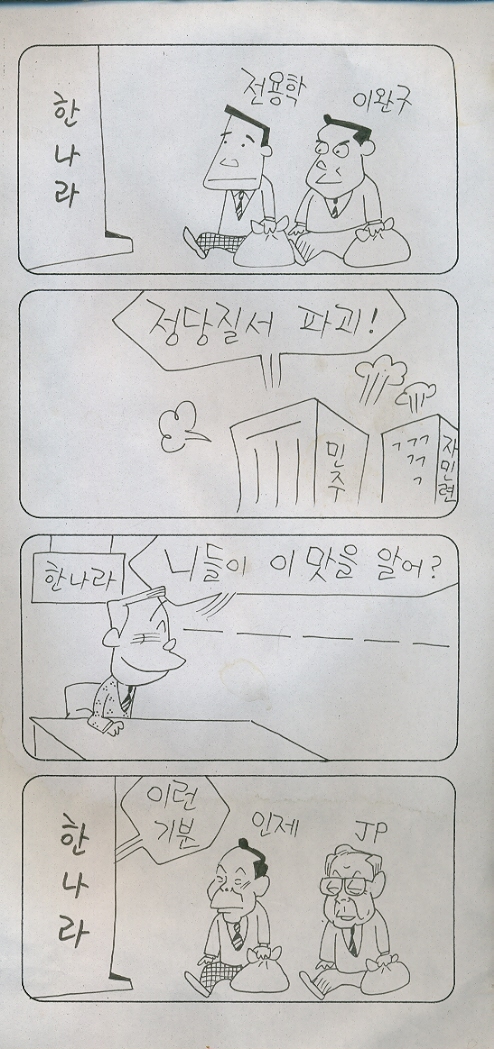 한나라
전용학
이완구
정당질서 파괴!
민주
자민련
한나라
니들이 이 맛을 알어?
한나라
이런
기분
인제
JP